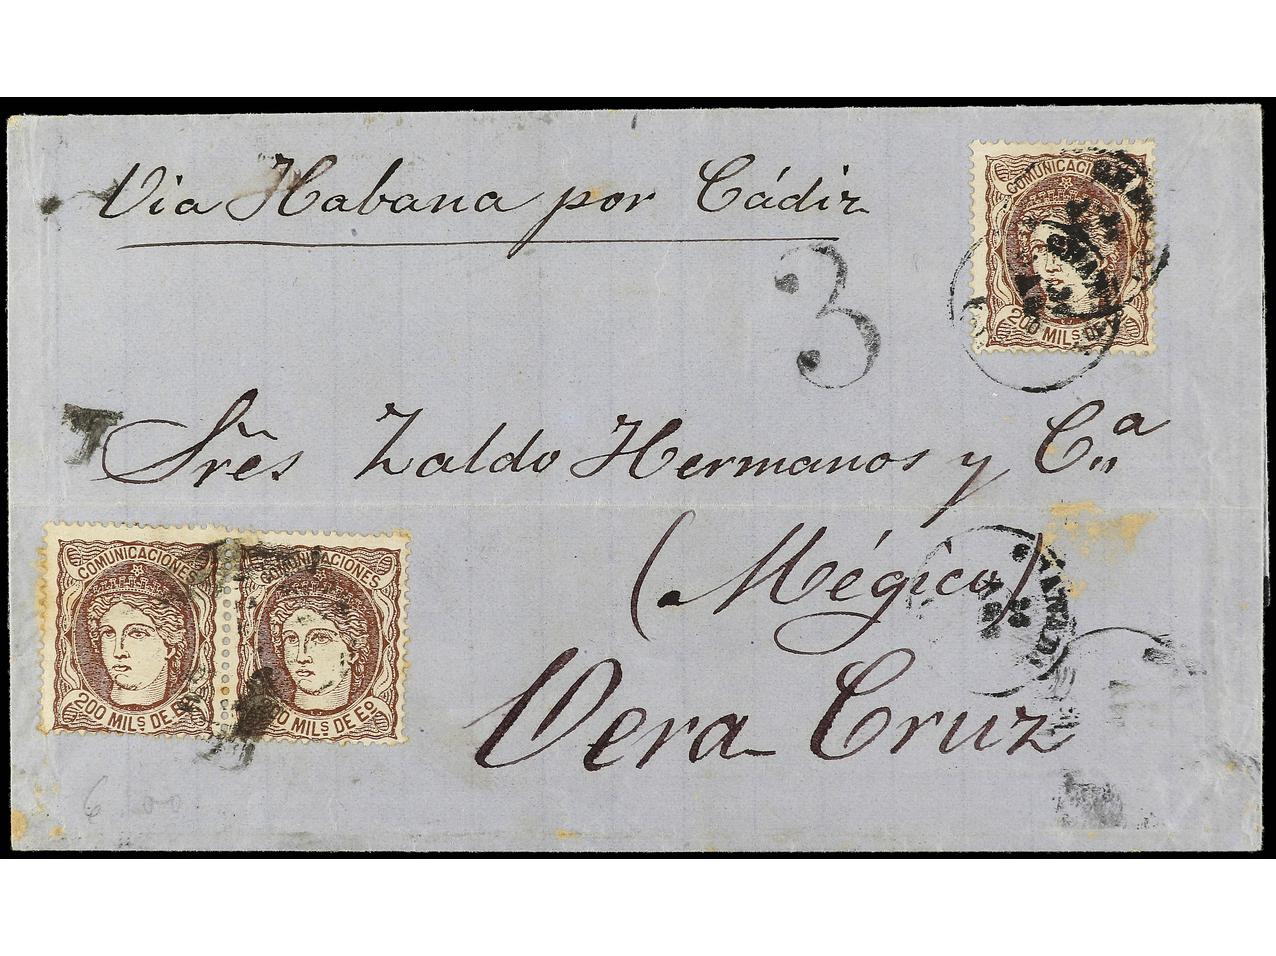 Via Habana por Cádiz
COMUNICACIONES
200 MILS DE
3
Sres Zaldo Hermanos y Cª
(Mégico)
Vera Cruz
COMUNICACIONES
200 MILS DE
COMUNICACIONES
MILS DE Eo
6 00